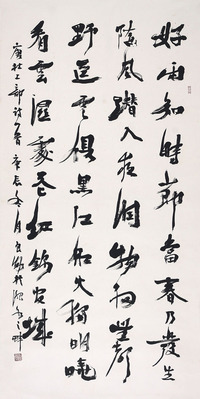 好雨知時節當春乃發生
隨風潛入夜潤物細無聲
野逕雲俱黑江船火獨明曉
看雲濕處花紅錦官城
唐杜工部詩一首 庚辰